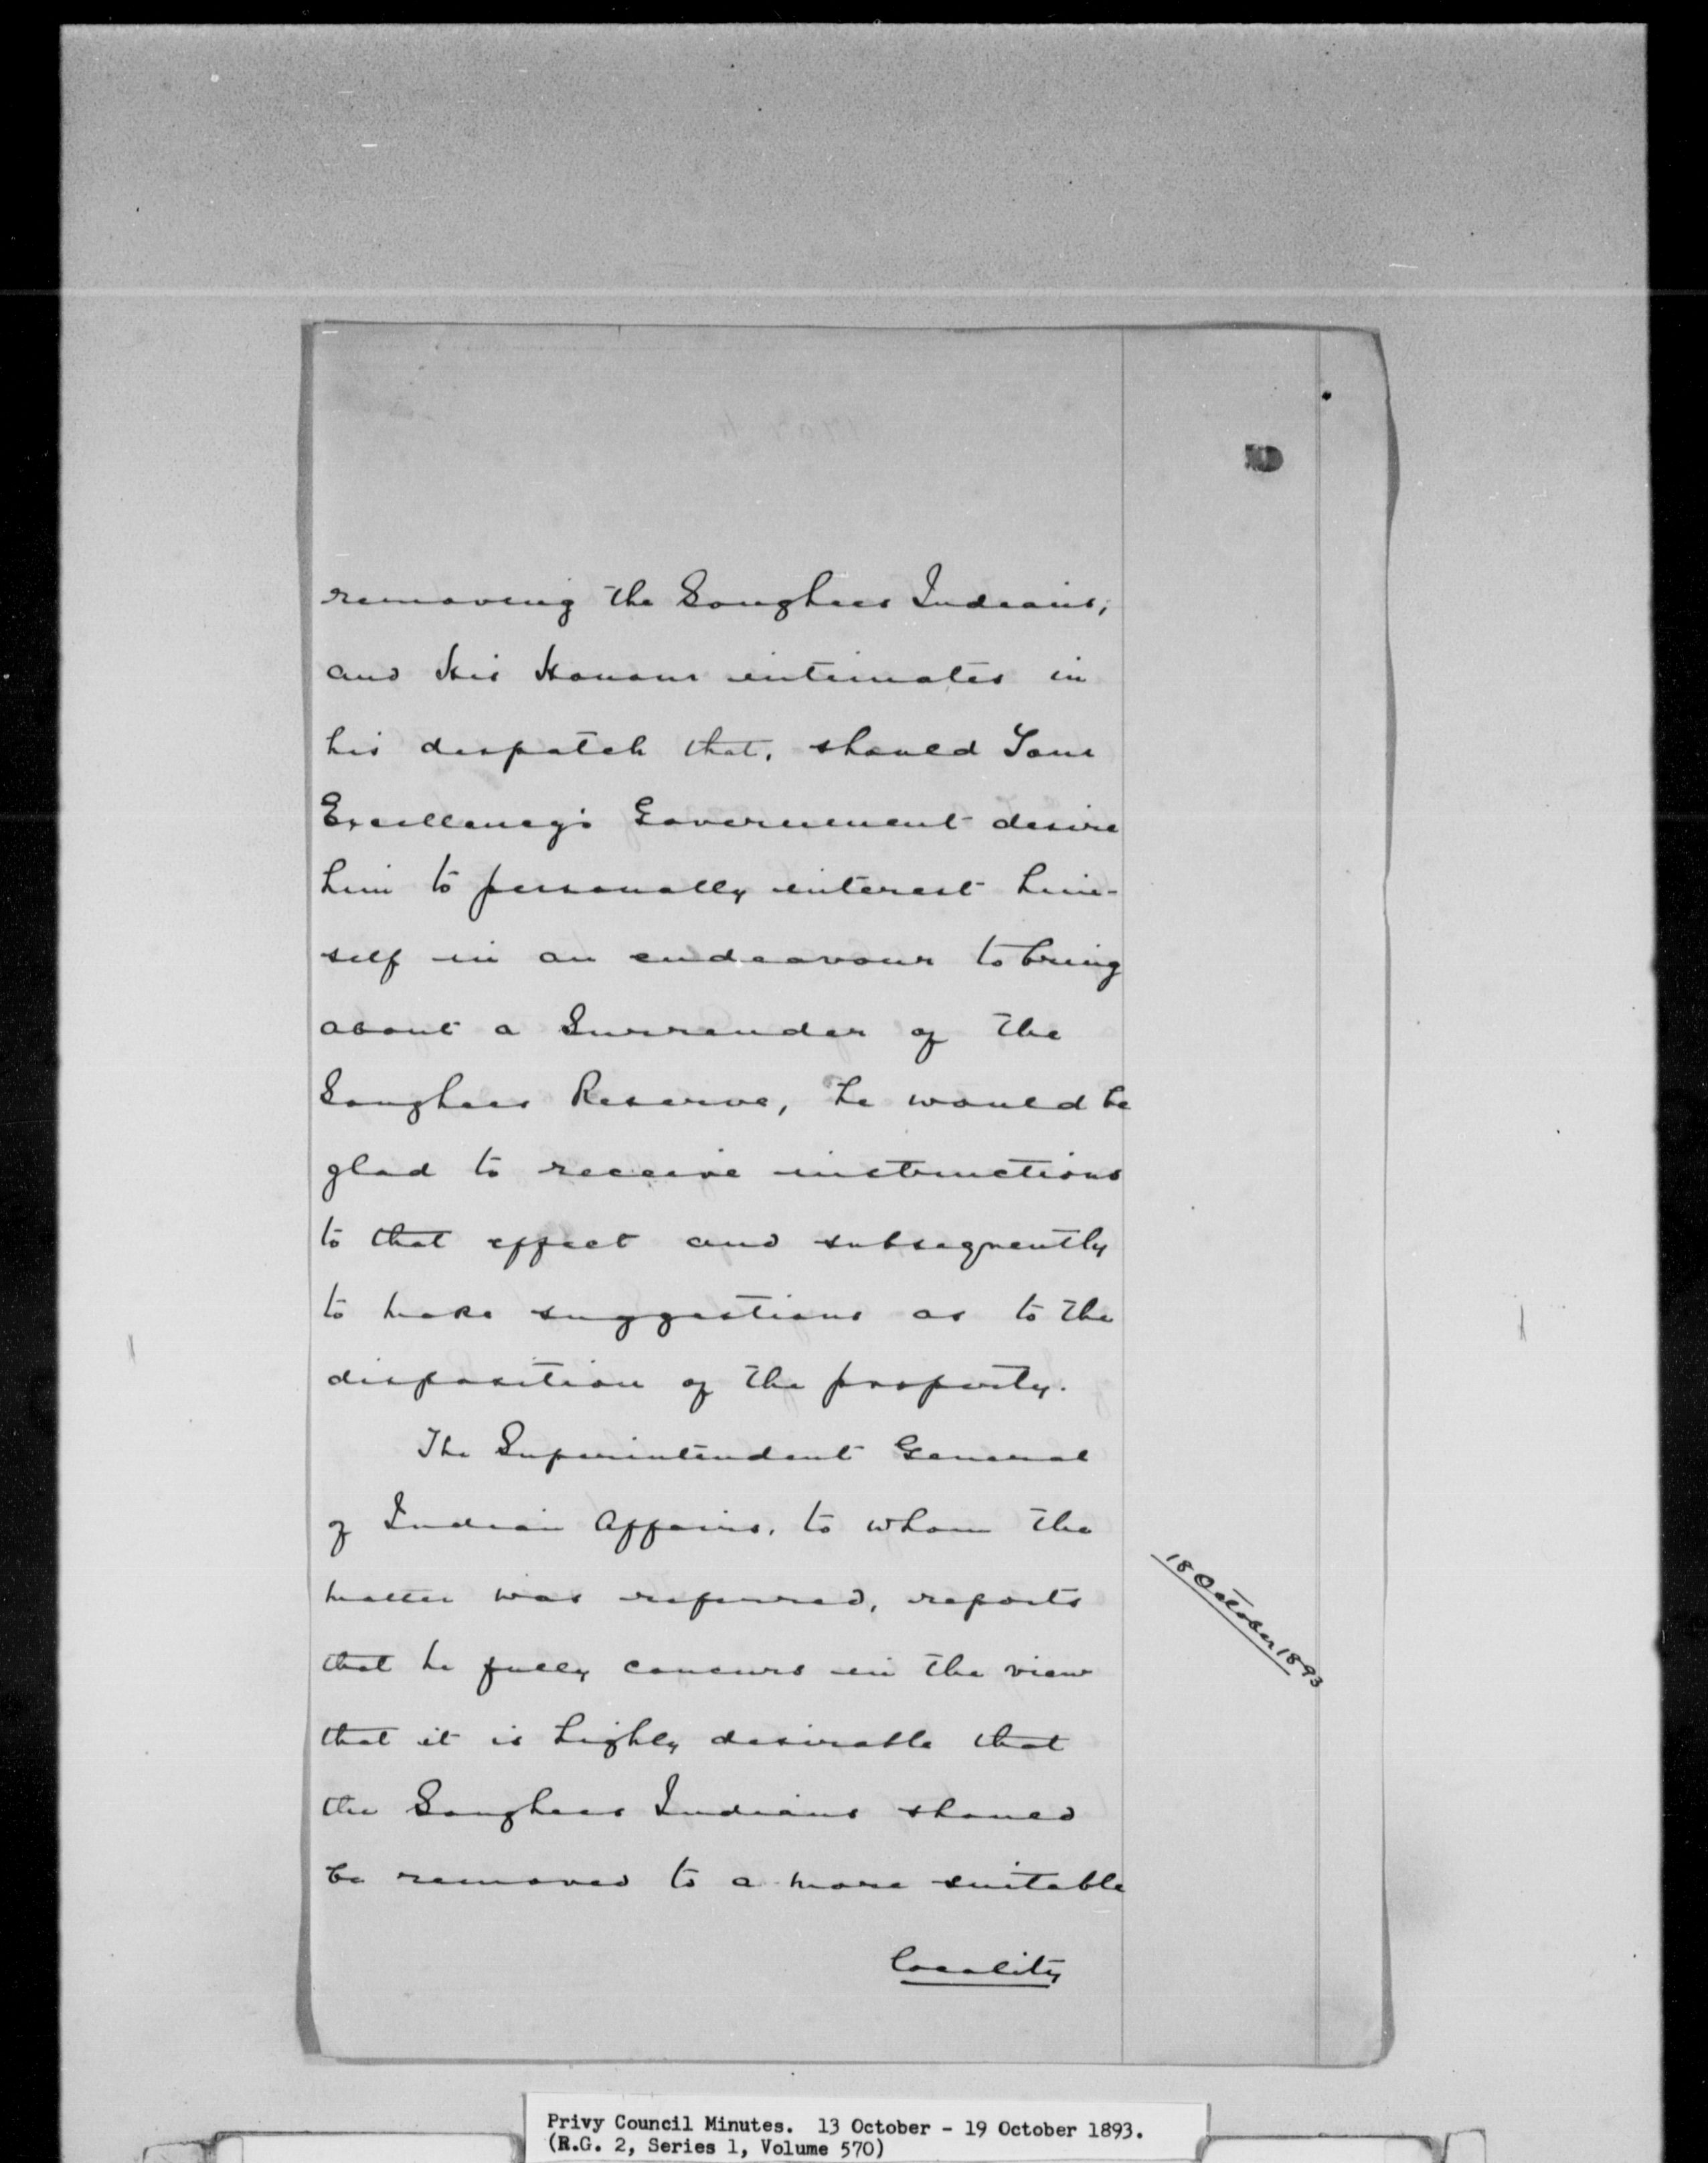 removing the Songhees Indians,
and His Honour intimates in
his despatch that, should Your
Excellency's Government desire
him to personally interest him-
self in an endeavour to bring
about a Surrender of the
Songhees Reserve, he would be
glad to receive instructions
to that effect and subsequently
to make suggestions as to the
disposition of the property.
The Superintendent General
of Indian Affairs, to whom the
matter was referred, reports
that he fully concurs in the view
that it is highly desirable that
the Songhees Indians should
be removed to a more suitable
locality
18 October 1893
Privy Council Minutes. 13 October - 19 October 1893.
(R.G. 2, Series 1, Volume 570)